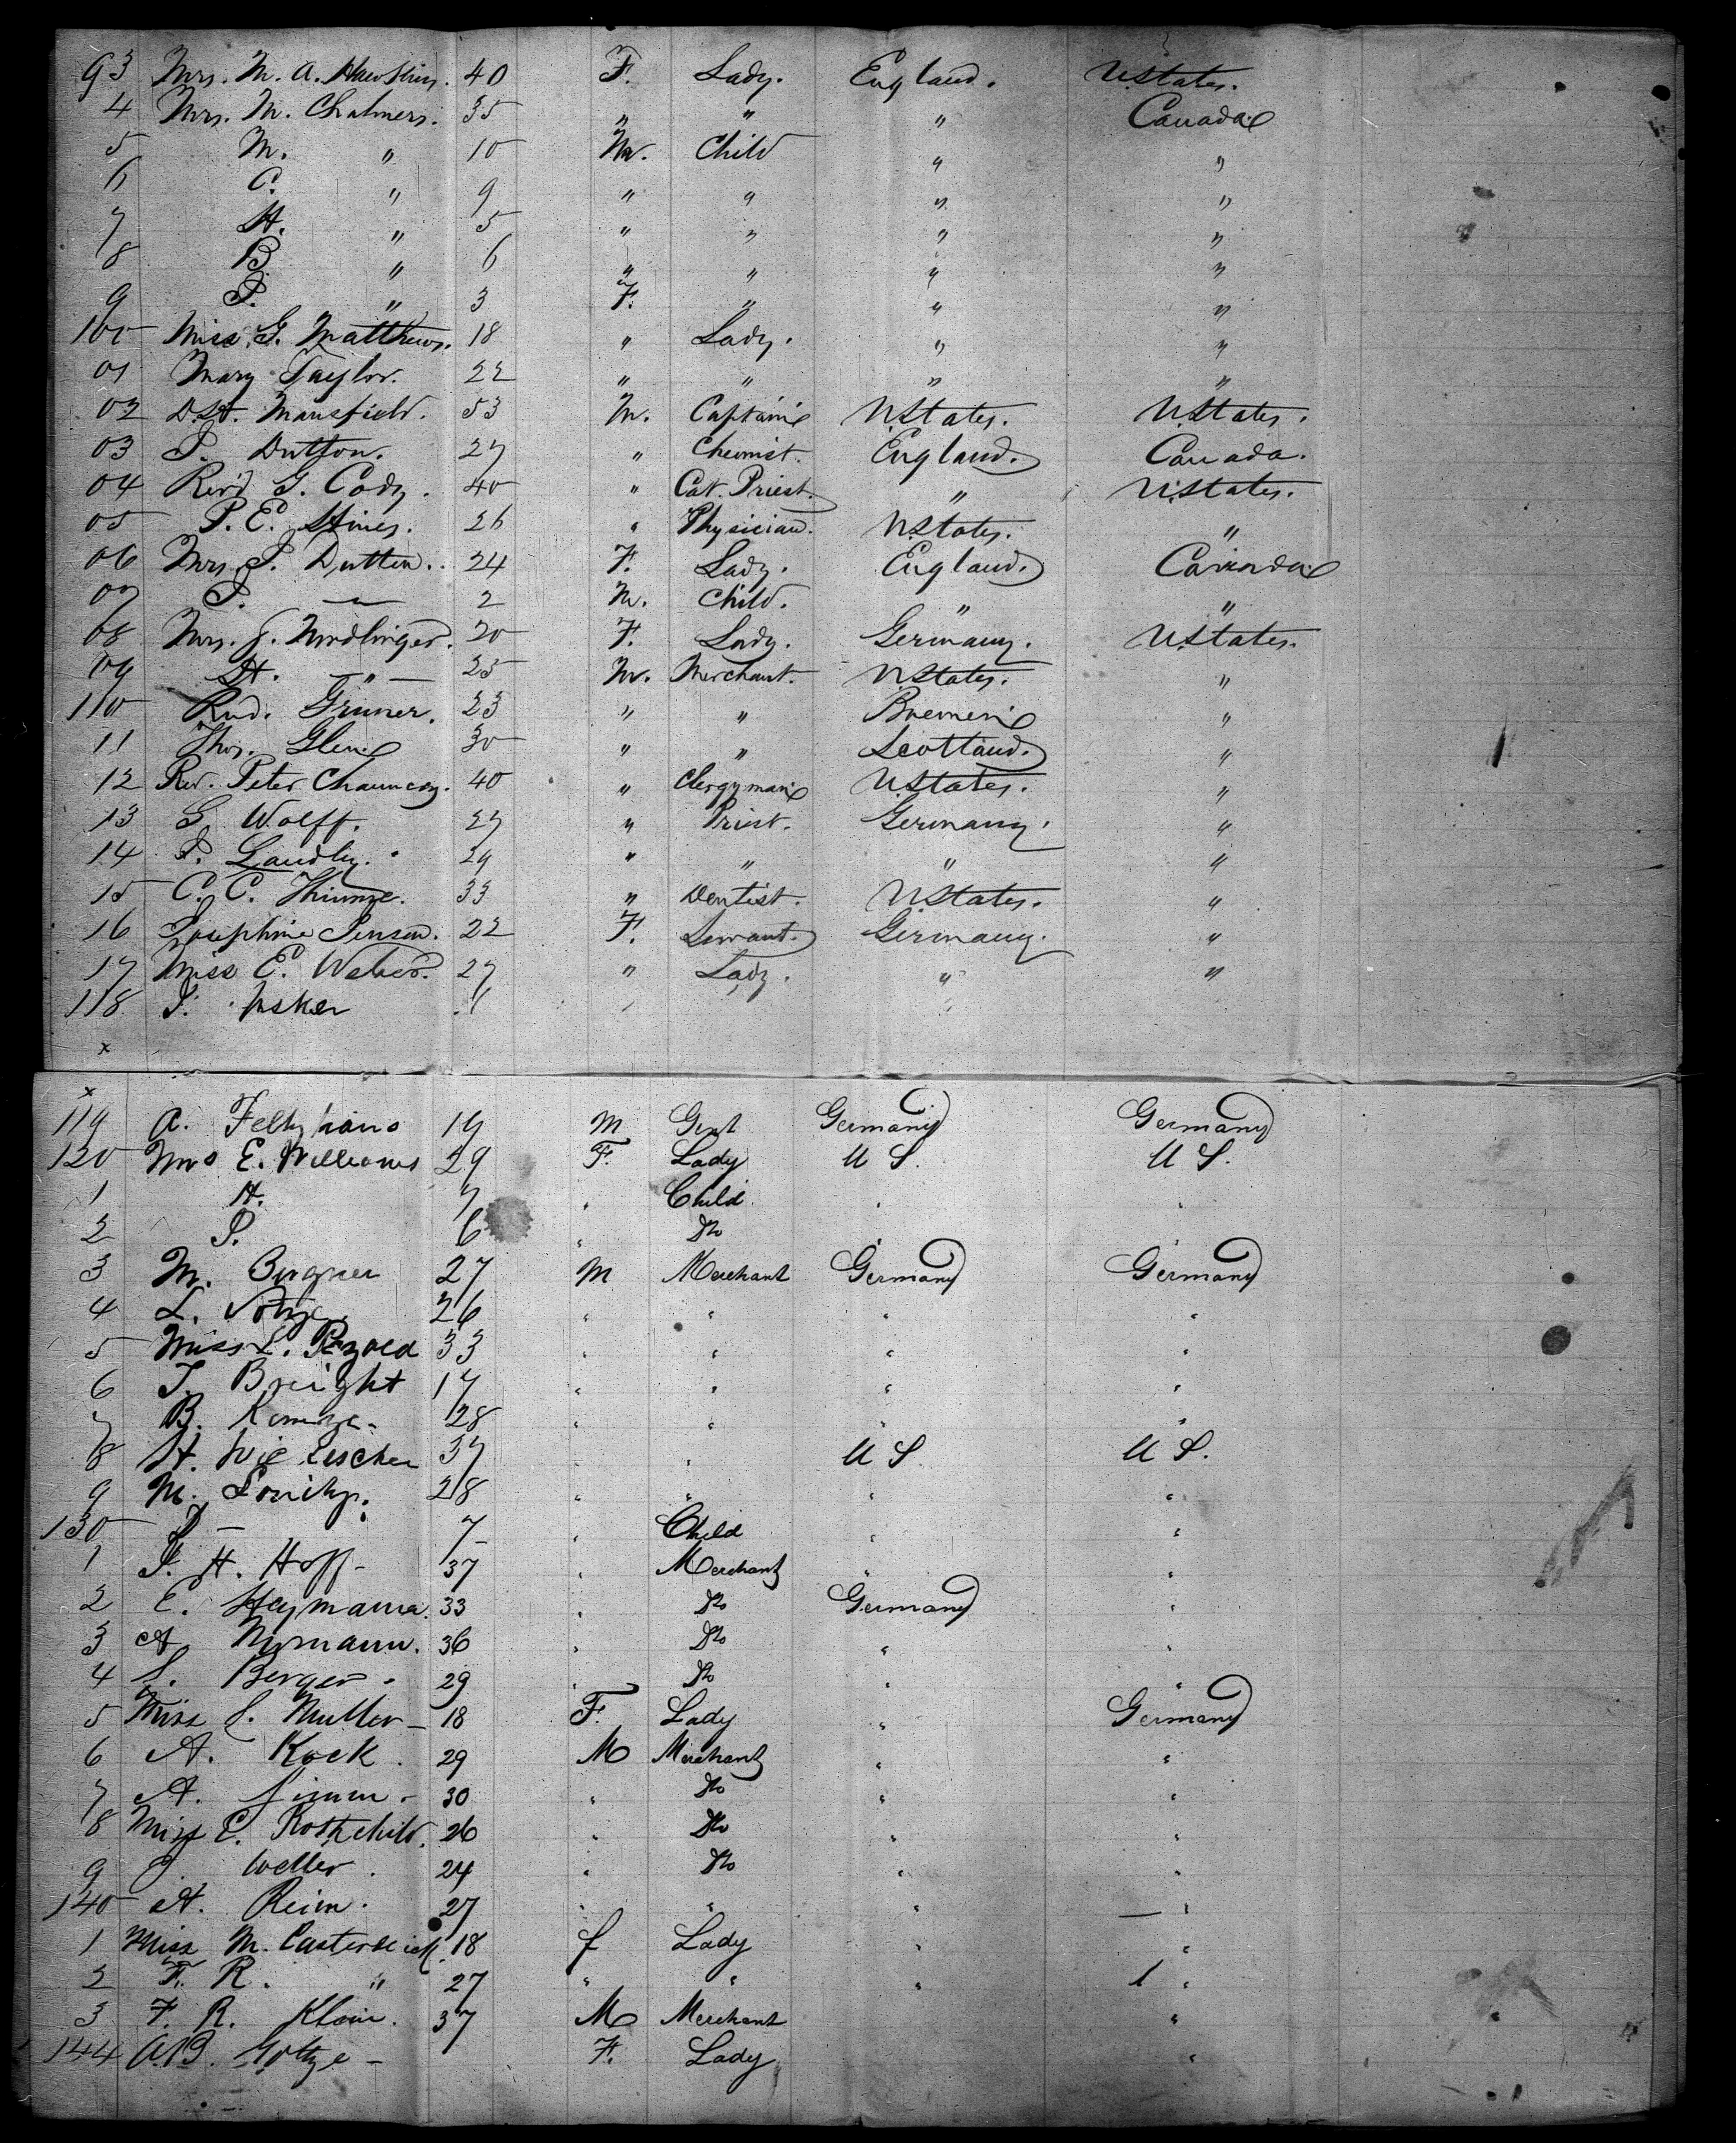 93 Mrs. M. A. Hawkins. 40 F. Lady. England. U.States.
4 Mrs. M. Chalmers. 35 " " " Canada
5 M. " 10 M. Child " "
6 C. " 9 " " " "
7 H. " 5 " " " "
8 B. " 6 " " " "
9 P. " 3 F. " " "
100 Miss G. Matthews. 18 " Lady. " "
01 Mary Taylor. 22 " " " "
02 D.H. Mansfield. 53 M. Captain U.States. U.States.
03 P. Dutton. 27 " Chemist. England. Canada.
04 Rev'd G. Cody. 40 " Cat. Priest. " U.States.
05 P. E. Hines. 26 " Physician. U.States. "
06 Mrs. P. Dutton. 24 F. Lady. England. Canada
07 P. — 2 M. Child. " "
08 Mrs. J. Nordlinger. 20 F. Lady. Germany. U.States.
09 H. —"— 25 M. Merchant. U.States. "
110 Rud. Gruner. 23 " " Bremen "
11 Thos. Glen 30 " " Scotland. "
12 Rev. Peter Chauncey. 40 " Clergyman U.States. "
13 G. Wolff. 27 " Priest. Germany. "
14 P. 29 " " " "
15 C. C. Thimme. 33 " Dentist. U.States. "
16 Josephine Jensen. 22 F. Servant. Germany. "
17 Miss E. Weber. 27 " Lady. " "
118 J. Usker
x
x
119 A. 19 M Gent Germany Germany
120 Mrs E. Williams 29 F. Lady U S. U S.
1 H. 7 " Child " "
2 P. 6 " Do
3 M. Bugner 27 M Merchant Germany Germany
4 L. 26 " " " "
5 Miss L. Pezold 33 " " " "
6 J. Breight 17 " " " "
7 B. 28 " " " "
8 H. 37 " " U S. U S.
9 M. 28 " " " "
130 — 7 " Child " "
1 P. H. Hoff - 37 " Merchant " "
2 E. Heymann. 33 " Do Germany "
3 A. 36 " Do " "
4 S. Berger. 29 " Do " "
5 Miss J. Muller - 18 F. Lady " Germany
6 A. Kock. 29 M Merchant " "
7 A. Simm. 30 " Do " "
8 Miss E. Rothchild. 26 " Do " "
9 J. Weller. 24 " Do " "
140 A. Reim. 27 " " " — "
1 Miss M. 18 f Lady " "
2 F. R. " 27 " " " "
3 F. R. Klein. 37 M Merchant "
144 A.B. Gottze - F. Lady "